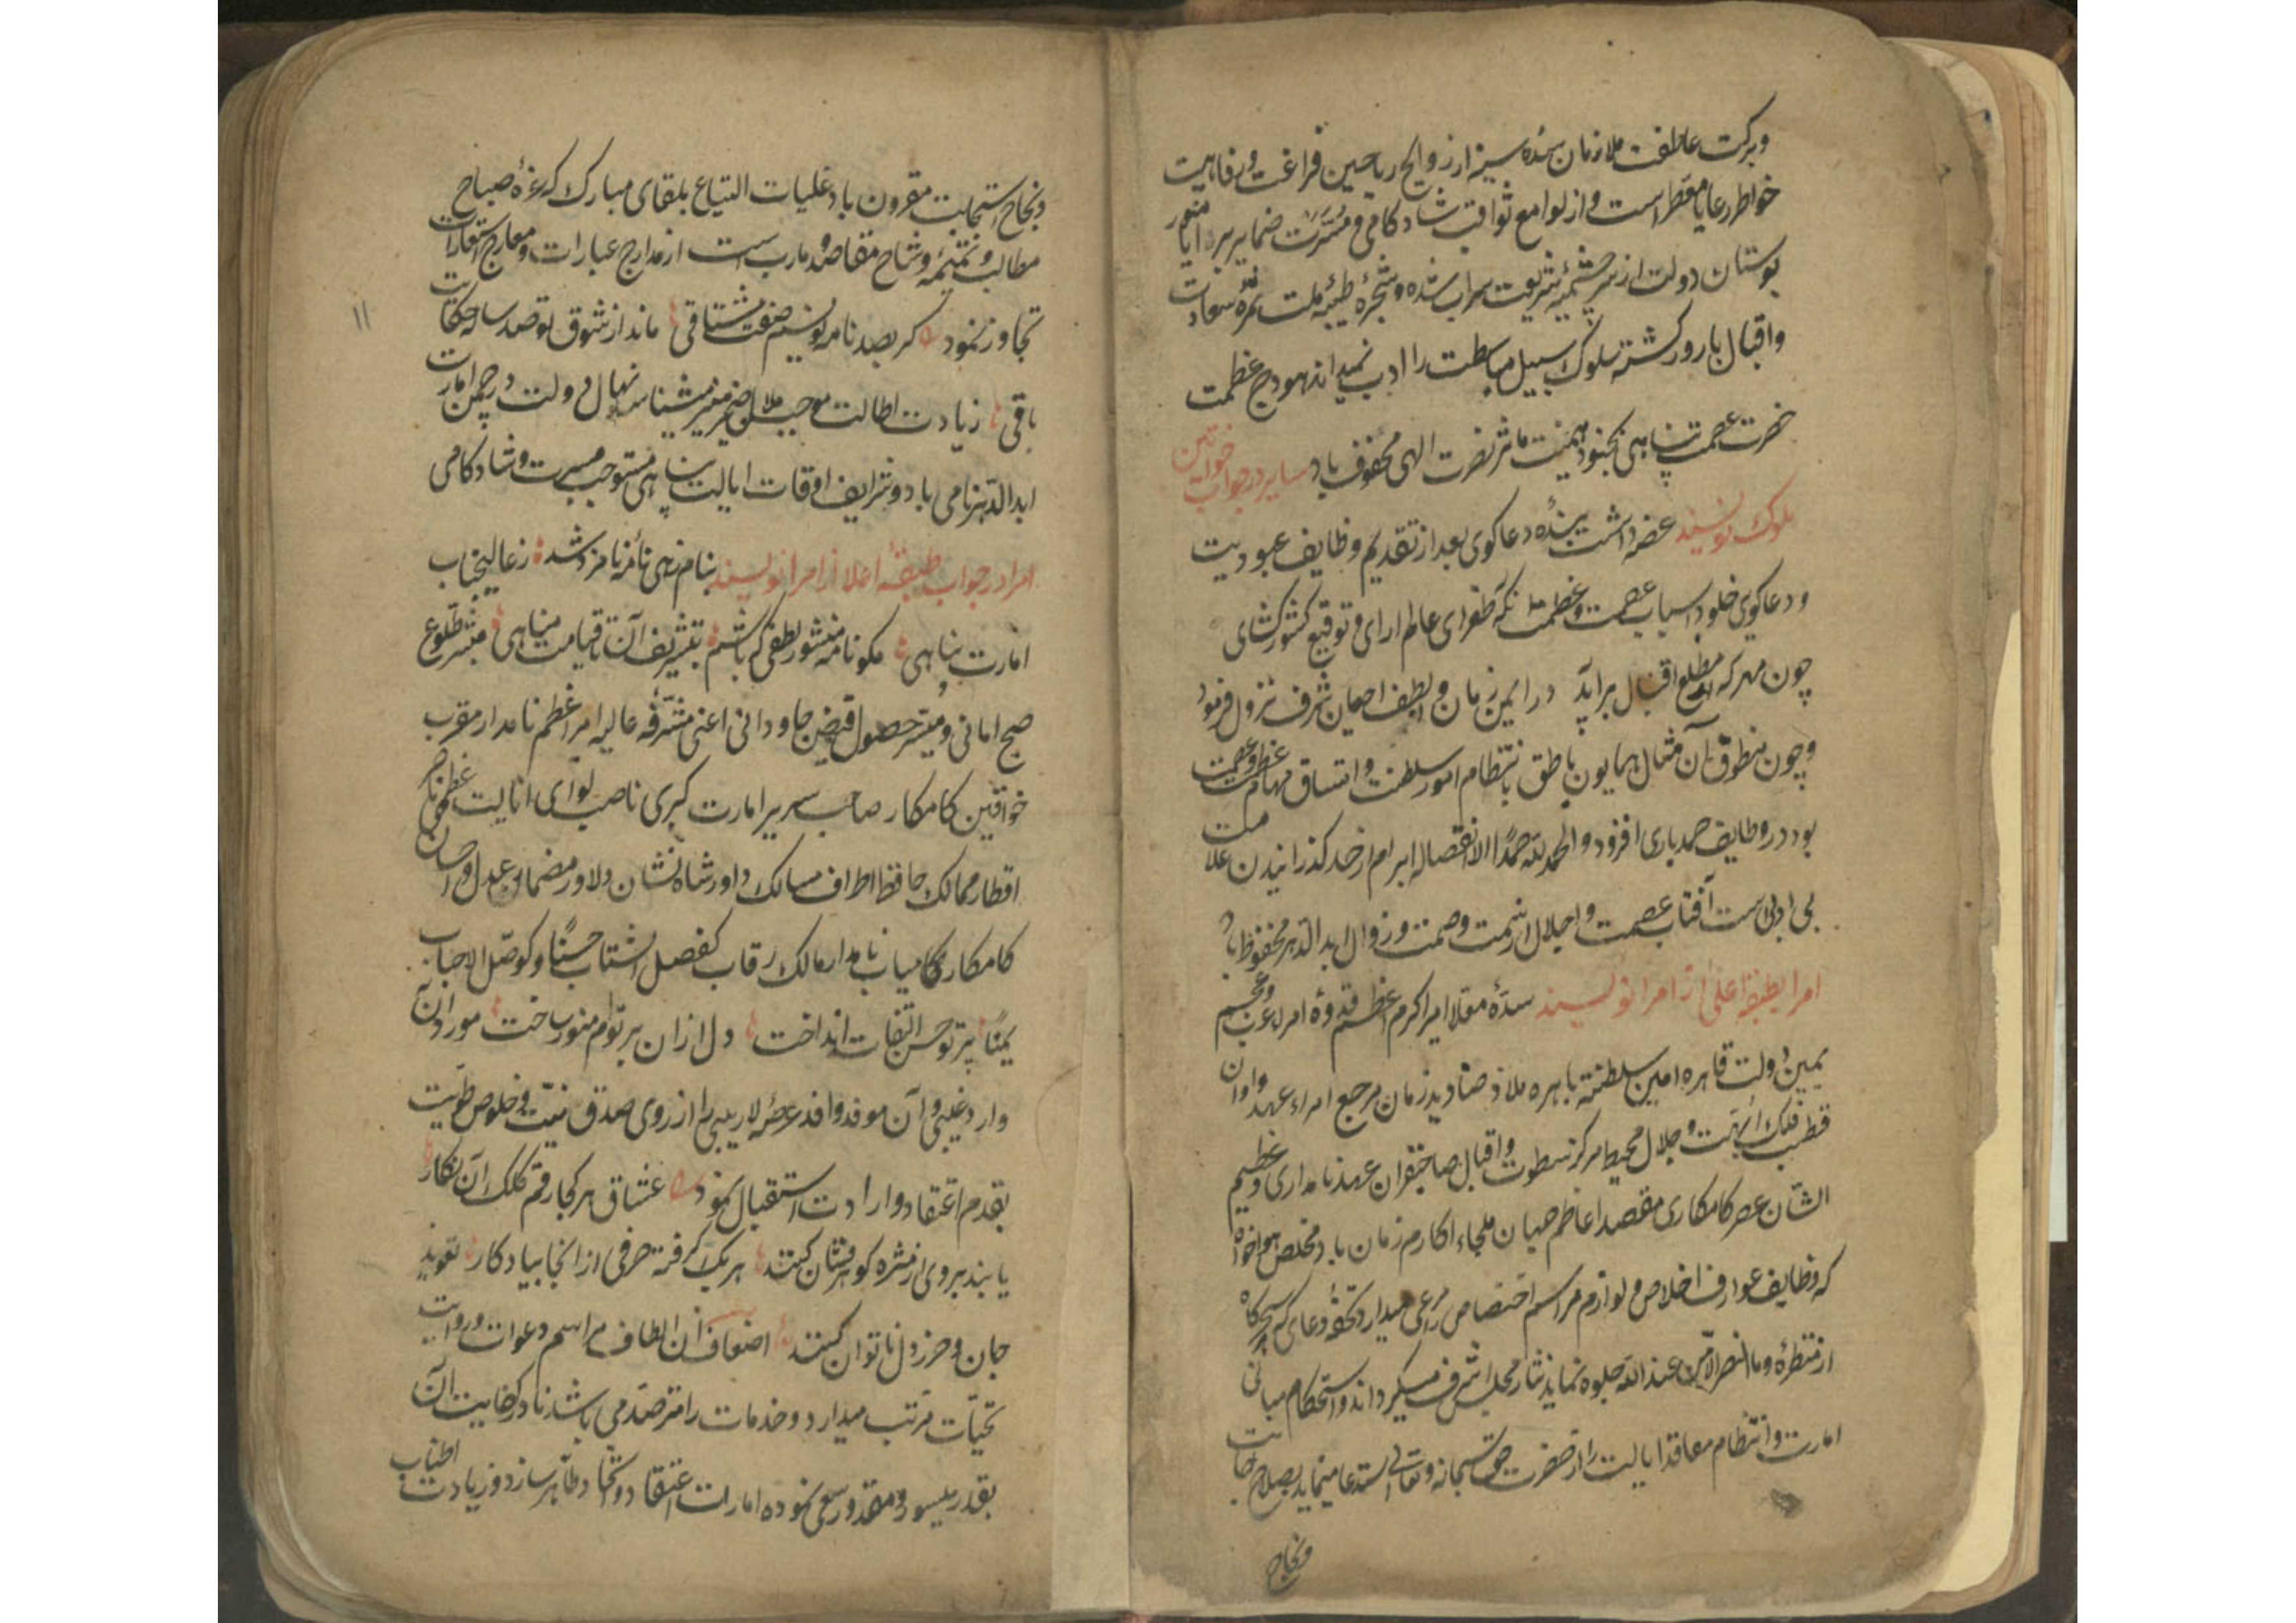 وبرکت عاطفت ملازمان سده سینه از روایح ریاحین فراغت و رفاهیت
خواطر رعایا معطر است و از لوامع ثواقب شادکامی و مسرت ضمایر برایا منور
بوستان دولت از سرچشمه شریعت سیراب شده و شجره طیبه ملت ثمره سعادت
واقبال بارور کشته سلوک سبیل مباسطت را ادب نمیداند هودج عظمت
حضرت عصمت پناهی بجنود میمنت مآثر نصرت الهی محفوف باد سایر خواتین در جواب
ملوک نویسند عرضه داشت بنده دعاکوی بعد از تقدیم وظایف عبودیت
ودعاکوی خلود اسباب عصمت و عظمت انکه طغرای عالم ارای و توقیع کشورکشای
چون مهر که از مطلع اقبال برآید درایمن زمان و الطف احیان شرف نزول فرمود
وچون منطوق آن مثال همایون ناطق بانتظام امور سلطنت و اتساق مهام عظمت و عصمت
بود در وظایف حمد باری افزود و الحمدلله حمدا لا انفصاله ابرام از حد کذرانیدن علامت
بی ادبی است آفتاب عصمت و اجلال از سمت وصمت و زوال ابد الدهر محفوظ باد
امرا بطبقه اعلی از امرا نویسند سده معلا امیر اکرم اعظم قدوه امراء عرب وعجم
یمین دولت قاهره امین سلطنته باهره ملاذ صنادید زمان مرجع امراء عهد واوان
قطب فلک ابهت و جلال محیط مرکز سطوت و اقبال صاحبقران عهد نامداری وعظیم
الشان عصر کامکاری مقصد اعاظم جهان ملجاء اکارم زمان باد مخلص هواخواه
که وظایف عوارف اخلاص و لوازم مراسم اختصاص مرعی میدارد تحفه دعای که سحرکاه
از منظره وما النصر الا من عند الله جلوه نماید نثار مجلس اشرف میکرداند و استحکام مبانی
امارت و انتظام معاقد ایالت را از حضرت حق سبحانه و تعالی استدعا مینماید بصلاح
ونجاح
ونجاح استجابت مقرون باد غلیات التیاع بلقای مبارک که غره صباح
مطالب و تتمه وشاح مقاصد و مارب است از مدارج عبارات و معارج استعارات
تجاوز نمود کر بصد نامه نویسیم صفت مشتاقی ماند از شوق تو صد ساله حکایت
باقی زیادت اطالت موجب ملال ضمیر منیر میشناسد نهال دولت در چمن امارت
ابد الدهر نامی باد و شرایف اوقات ایالت پناهی مستوجب مسرت وشادکامی
امرا در جواب طبقه اعلا از امرا نویسند بنام رهی نامه نامزد شد ز عالیجناب
امارت پناهی مکو نامه منشور لطفی که باشم بتشریف آن تا قیامت مباهی مبشر طلوع
صبح امانی و میسر حصول فیض جاودانی اعنی مشرفه عالیه امیر اعظم نامدار مقرب
خواقین کامکار صاحب سریر امارت کبری ناصب لوای ایالت عظمی ناصر
اقطار ممالک حافظ اطراف مسالک داور شاه نشان دلاور مضمار عدل و احسان
کامکار کامیاب نامدار مالک رقاب کفصل الشتاب حسنا و کوصل الاحباب
یمنا پرتو حسن التفات انداخت دل از ان پرتوام منور ساخت مورد آن
وارد غیبی و آن موفد وافد عرصه لاریبی را از روی صدق نیت و خلوص طویت
بقدم اعتقاد و ارادت استقبال نمود عشاق هر کجا رقم کلک آن نکار
یابند بروی از مژه کوهرفشان کنند هریک کرفته حرفی از انجا بیادکار تعویذ
جان و حرز دل ناتوان کنند اضعاف آن الطاف مراسم دعوات و رواتب
تحیات مرتب میدارد و خدمات را مترصد می باشد تا در کفایت آن
بقدر میسور و مقدور سعی نموده امارات اعتقاد و اتحاد ظاهر سازد و زیادت اطناب